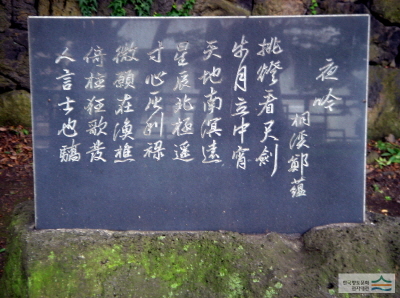 夜吟
桐溪 鄭蘊
挑燈看尺劍
步月立中宵
天地南溟遠
星辰北極遙
寸心灰利祿
微願在漁樵
倚狂歌發
人言士也驕
한국향토문화
전자대전